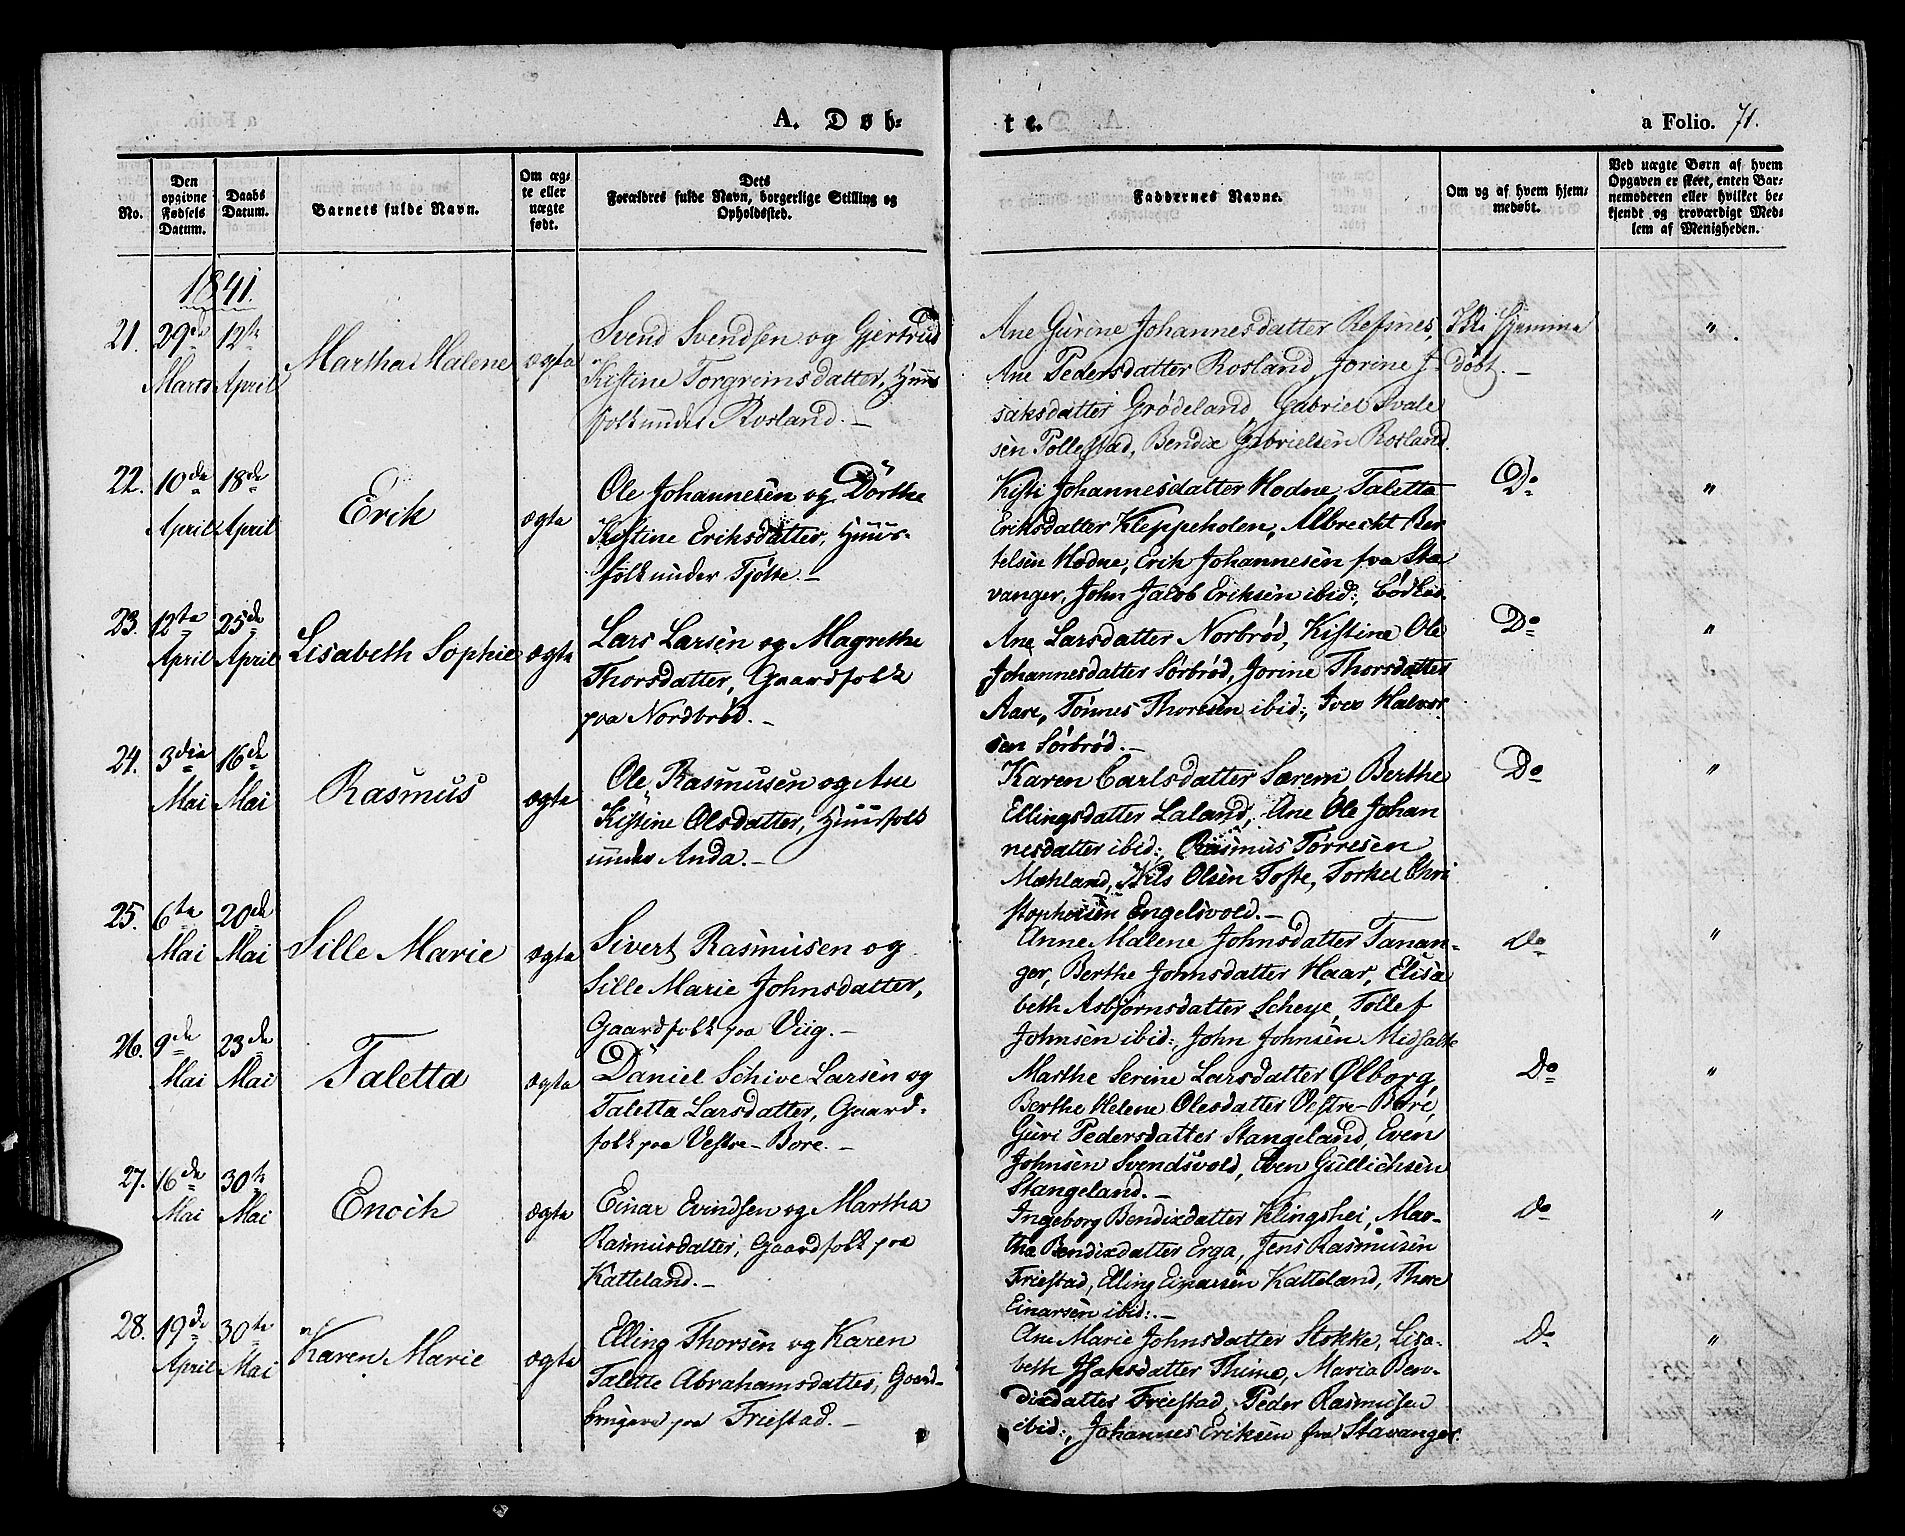 A. Døb-
te.
a Folio. 71.
No.
Den opgivne Fødsels Datum.
Daabs Datum.
Barnets fulde Navn.
Om ægte eller uægte født.
Dets Forældres fulde Navn, borgerlige Stilling og Opholdssted.
Faddernes Navne.
Om og af hvem hjemmedøbt.
Ved uægte Børn af hvem Opgaven er skeet, enten Barnemoderen eller hvilket bekjendt og troværdigt Medlem af Menigheden.
1841.
21. 29de Marts 12te April
Martha Malene
ægte
Svend Svendsen og Gjertrud
Kistine Torgrimsdatter, Huus
folk under Rosland.
Ane Gurine Johannesdatter Refsnes,
Ane Pedersdatter Rosland, Jorine J-
saksdatter Grødeland, Gabriel Svale
sen Pollestad, Bendix Gabrielsen Rosland.
Ikke Hjemme
døbt.
"
22. 10de April 18de April
Erik
ægte
Ole Johannesen og Dorthe
Kistine Eriksdatter, Huus-
folk under Tjøtte.
Kisti Johannesdatter Hodne, Taletta
Eriksdatter Kleppeholen, Albrecht Ber
telsen Hodne, Erik Johannesen fra Sta
vanger, John Jacob Eriksen ibid:,
Do
"
23. 12te April 25de April
Lisabeth Sophie
ægte
Lars Larsen og Magrethe
Thorsdatter, Gaardfolk
paa Nordbrød.
Ane Larsdatter Norbrød, Kistine Ole
Johannesdatter Sørbrød, Jorine Thorsdatter
Aare, Tønnes Thoresen ibid:, Iver Halvor
sen Sørbrød.
Do
"
24. 3die Mai 16de Mai
Rasmus
ægte
Ole Rasmusen og Ane
Kistine Olsdatter, Huusfolk
under Anda.
Karen Carlsdatter Særem, Berthe
Ellingsdatter Laland, Ane Ole Johan
nesdatter ibid:, Rasmus Tørresen
Mæhland, Nils Olsen Tofte, Torkel Chri
stophersen Engelsvold.
Do
"
25. 6te Mai 20de Mai
Sille Marie
ægte
Sivert Rasmusen og
Sille Marie Johnsdatter,
Gaardfolk paa Viig.
Anne Malene Johnsdatter Tanan-
ger, Berthe Johnsdatter Haar, Elisa
beth Asbjørnsdatter Scheje, Tollef
Johnsen ibid:, John Johnsen Midfalte
Do
"
26. 9de Mai 23de Mai
Taletta
ægte
Daniel Schive Larsen og
Taletta Larsdatter, Gaard-
folk paa Vestre-Bore.
Marthe Serine Larsdatter Ølborg,
Berthe Helene Olesdatter Vestre-Bore,
Guri Pedersdatter Stangeland, Even
Johnsen Svendsvold, Even Gullichsen
Stangeland.
Do
"
27. 16de Mai 30te Mai
Enoch
ægte
Einar Evindsen og Martha
Rasmusdatter, Gaardfolk paa
Katteland.
Ingeborg Bendixdatter Klingshei, Mar-
tha Bendixdatter Erga, Jens Rasmusen
Friestad, Elling Einarsen Katteland, Thore
Einarsen ibid:.
Do
"
28. 19de April 30te Mai
Karen Marie
ægte
Elling Thorsen og Karen
Talette Abrahamsdatter, Gaard-
brugere paa Friestad.
Ane Marie Johnsdatter Stokke, Lisa-
beth Isaksdatter Thime, Maria Ben-
dixdatter Friestad, Peder Rasmusen
ibid:, Johannes Eriksen fra Stavanger.
Do
"